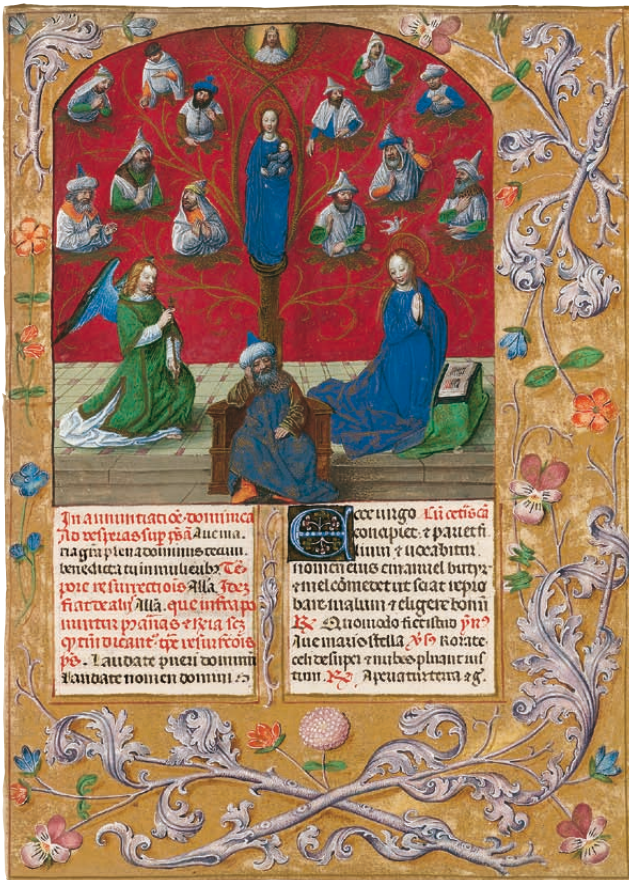 In annuntiatiōe dominica
Ad vesperas sup psā Aue ma
ria grā plena dominus tecum
benedicta tu in mulieribꝫ Tē
pore resurrectiōis Alla. Idez
fiat de aliis Alla. que infra po
nuntur
dicant tpe resurrectiōis
ps. Laudate pueri dominū
laudate nomen domini
Ecce uirgo Cū cetis cā
concipiet ⁊ pariet fi
lium ⁊ uocabitur
nomen eius emanuel butyrū
⁊ mel comedet ut sciat repro
bare malum ⁊ eligere bonū
Quomodo fiet istud ymꝰ
Aue maris stella Rorate
celi desuper ⁊ nubes pluant ius
tum. Aperiatur terra ⁊ g̃.